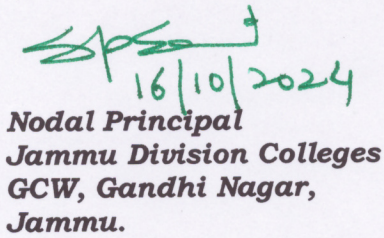 16/10/2024
Nodal Principal
Jammu Division Colleges
GCW, Gandhi Nagar,
Jammu.